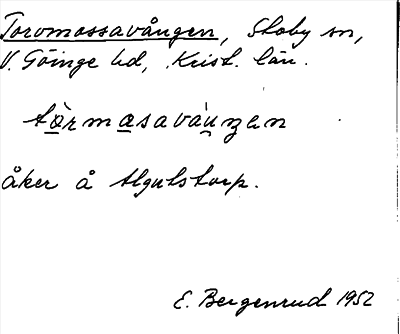 Torvmossavången, Stoby sn,
V. Göinge hd, Krist. län.
tòrmasavàu̯ŋən
åker å Algutstorp.
E. Bergenrud 1952